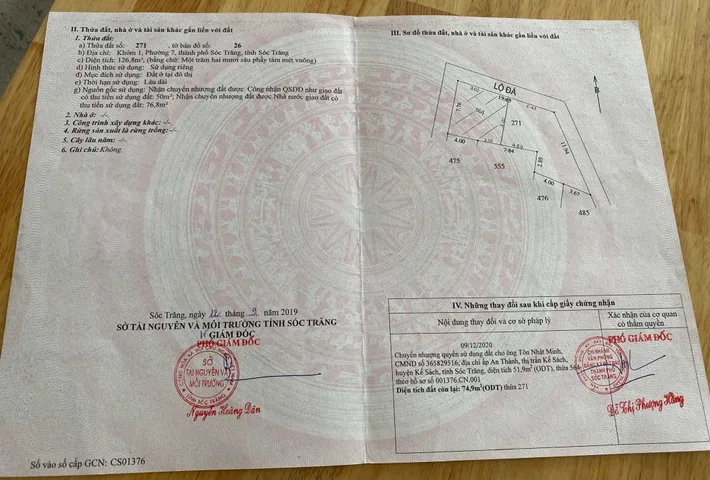 II. Thửa đất, nhà ở và tài sản khác gắn liền với đất
1. Thửa đất:
a) Thửa đất số: 271 , tờ bản đồ số: 26
b) Địa chỉ: Khóm 1, Phường 7, thành phố Sóc Trăng, tỉnh Sóc Trăng
c) Diện tích: 126,8m², (bằng chữ: Một trăm hai mươi sáu phẩy tám mét vuông)
d) Hình thức sử dụng: Sử dụng riêng
đ) Mục đích sử dụng: Đất ở tại đô thị
e) Thời hạn sử dụng: Lâu dài
g) Nguồn gốc sử dụng: Nhận chuyển nhượng đất được Công nhận QSDĐ như giao đất
có thu tiền sử dụng đất: 50m²; Nhận chuyển nhượng đất được Nhà nước giao đất có
thu tiền sử dụng đất: 76,8m².
2. Nhà ở: -/-.
3. Công trình xây dựng khác: -/-.
4. Rừng sản xuất là rừng trồng: -/-.
5. Cây lâu năm: -/-.
6. Ghi chú: Không.
Sóc Trăng, ngày tháng 9 năm 2019
SỞ TÀI NGUYÊN VÀ MÔI TRƯỜNG TỈNH SÓC TRĂNG
GIÁM ĐỐC
PHÓ GIÁM ĐỐC
SỞ
TÀI NGUYÊN VÀ
MÔI TRƯỜNG
TỈNH SÓC TRĂNG
Nguyễn Hoàng Dân
Số vào sổ cấp GCN: CS01376
III. Sơ đồ thửa đất, nhà ở và tài sản khác gắn liền với đất
LỘ ĐÁ
B
7.76
564
271
11.94
4.00
7.84
475
555
2.89
4.00
3.67
476
485
IV. Những thay đổi sau khi cấp giấy chứng nhận
Nội dung thay đổi và cơ sở pháp lý
Xác nhận của cơ quan
có thẩm quyền
09/12/2020
Chuyển nhượng quyền sử dụng đất cho ông Tôn Nhật Minh,
CMND số 365829516, địa chỉ ấp An Thành, thị trấn Kế Sách,
huyện Kế Sách, tỉnh Sóc Trăng, diện tích 51,9m² (ODT), thửa 564
theo hồ sơ số 001376.CN.001
Diện tích đất còn lại: 74,9m² (ODT) thửa 271
PHÓ GIÁM ĐỐC
CHI NHÁNH
VĂN PHÒNG
THÀNH PHỐ
SÓC TRĂNG
Đỗ Thị Phượng Hằng